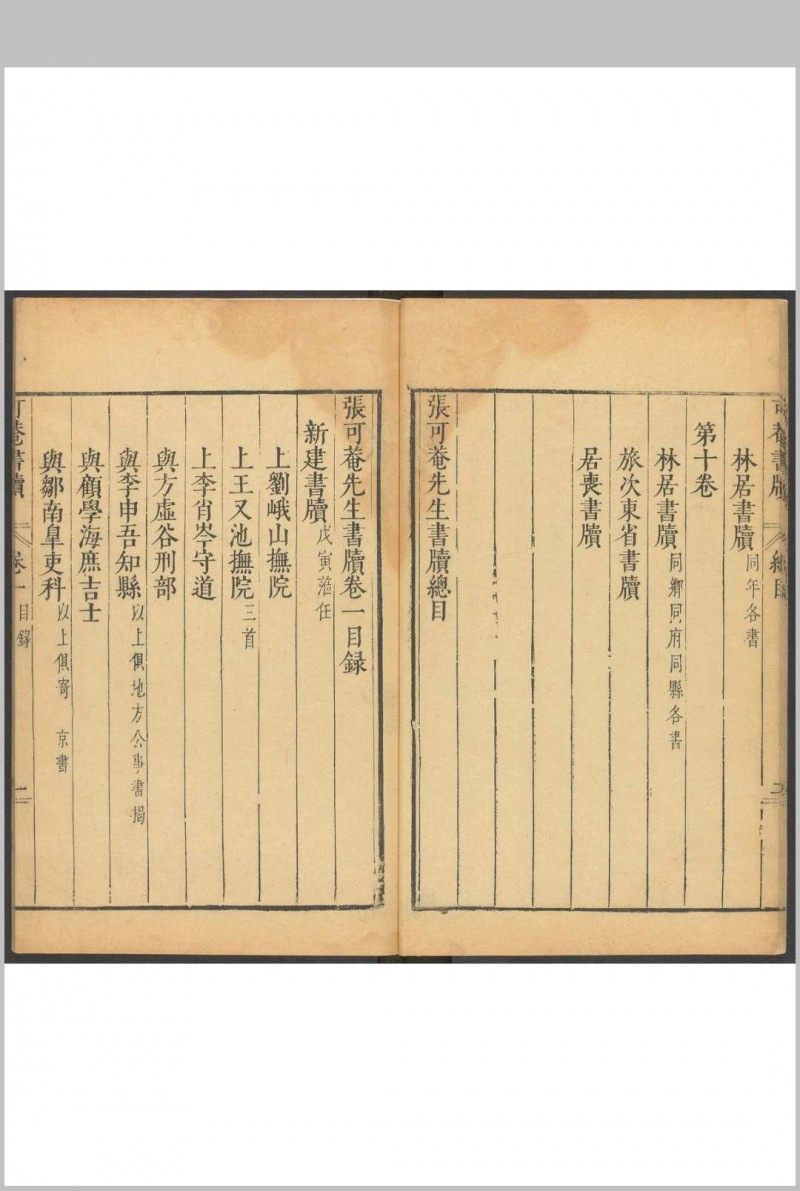 可菴書牘 總目
林居書牘 同年各書
第十卷
林居書牘 同鄉同府同縣各書
旅次東省書牘
居喪書牘
張可菴先生書牘總目
張可菴先生書牘卷一目録
新建書牘 戊寅蒞任
上劉峨山撫院
上王又池撫院 三首
上李肖岑守道
與方虛谷刑部
與李申吾知縣 以上俱地方公事書揭
與顧學海庶吉士
與鄒南臯吏科 以上俱寄 京書
可菴書牘 卷一 目録 一